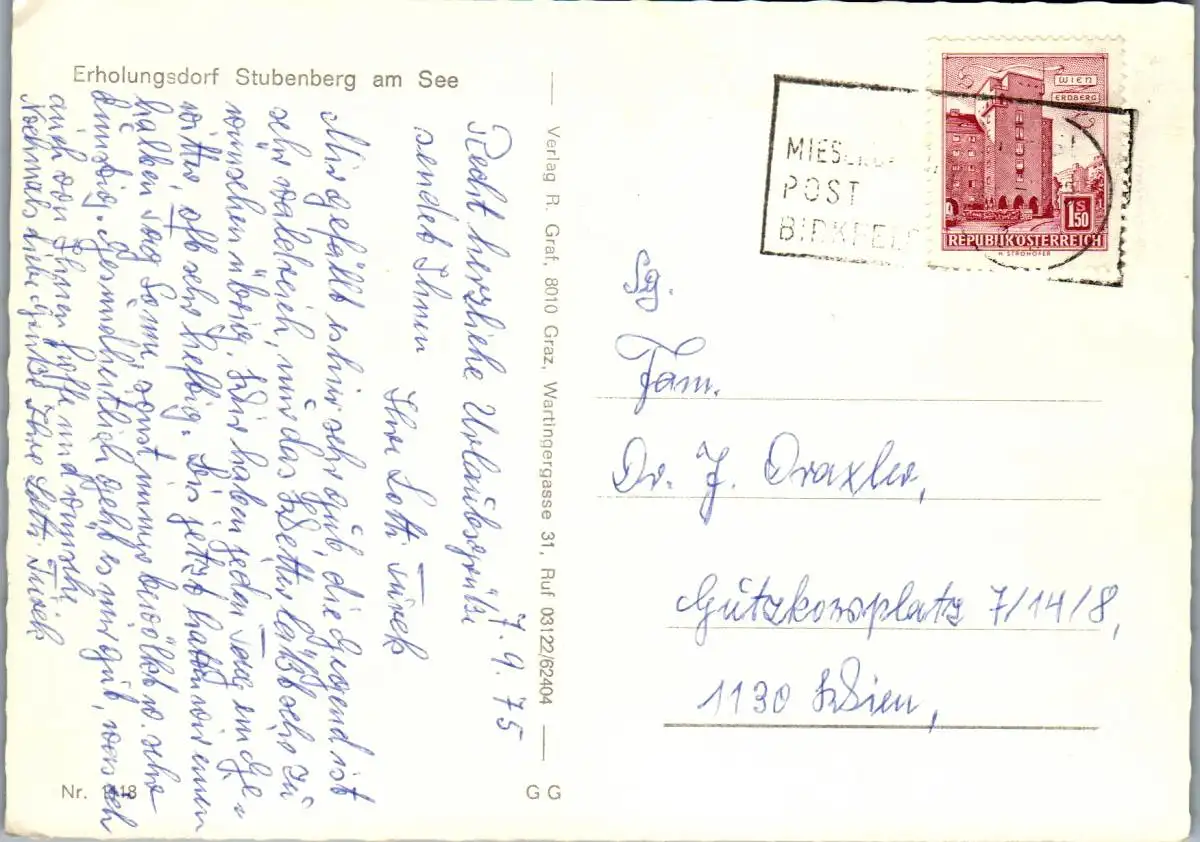 Erholungsdorf Stubenberg am See
7. 9. 75
Recht herzliche Urlaubsgrüße
sendet Ihnen
Ihre Lotti
Mir gefällt es hier sehr gut, die Gegend ist
sehr malerisch, nur das Wetter läßt sehr zu
wünschen übrig. Wir haben jeden Tag ein Ge-
witter, oft sehr heftig. Bis jetzt hatten wir einen
halben Tag Sonne, sonst immer bewölkt u. sehr
dunstig. Gesundheitlich geht es mir gut, was ich
auch von Ihnen hoffe und wünsche
Nochmals liebe Grüße Ihre Lotti
Verlag R. Graf, 8010 Graz, Wartingergasse 31, Ruf 03122/62404
Nr. 1418
G G
WIEN
ERDBERG
S
1.50
REPUBLIK ÖSTERREICH
H. STROHOFER
POST
BIRKFELD
Sg.
Fam.
Dr. J. Draxler,
Gutzkowplatz 7/14/8,
1130 Wien,